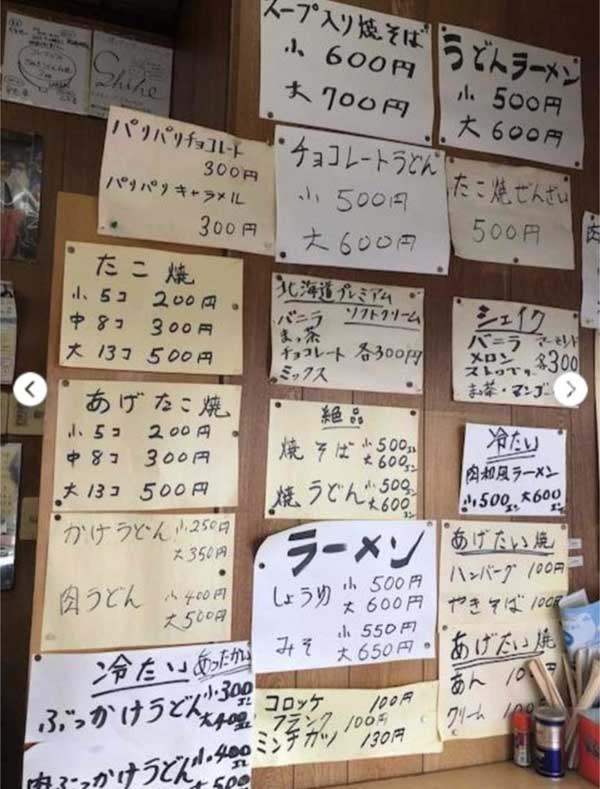 Shihe
スープ入り焼そば
小 600円
大 700円
うどんラーメン
小 500円
大 600円
パリパリチョコレート
300円
パリパリキャラメル
300円
チョコレートうどん
小 500円
大 600円
たこ焼ぜんざい
500円
肉
たこ焼
小 5コ 200円
中 8コ 300円
大 13コ 500円
北海道プレミアム
ソフトクリーム
バニラ
まっ茶
チョコレート 各300円
ミックス
シェイク
バニラ アーモンド
メロン 各300
ストロベリー
まっ茶・マンゴー
あげたこ焼
小 5コ 200円
中 8コ 300円
大 13コ 500円
絶品
焼そば 小500円
大600円
焼うどん 小500円
大600円
冷たい
肉和風ラーメン
小500円 大600円
かけうどん 小250円
大350円
肉うどん 小400円
大500円
ラーメン
しょうゆ 小 500円
大 600円
みそ 小 550円
大 650円
あげたい焼
ハンバーグ 100円
やきそば 100円
あげたい焼
あん
クリーム
冷たい あったかい
ぶっかけうどん 小300円
大400円
肉ぶっかけうどん 小400円
大500
コロッケ 100円
フランク 100円
ミンチカツ 130円